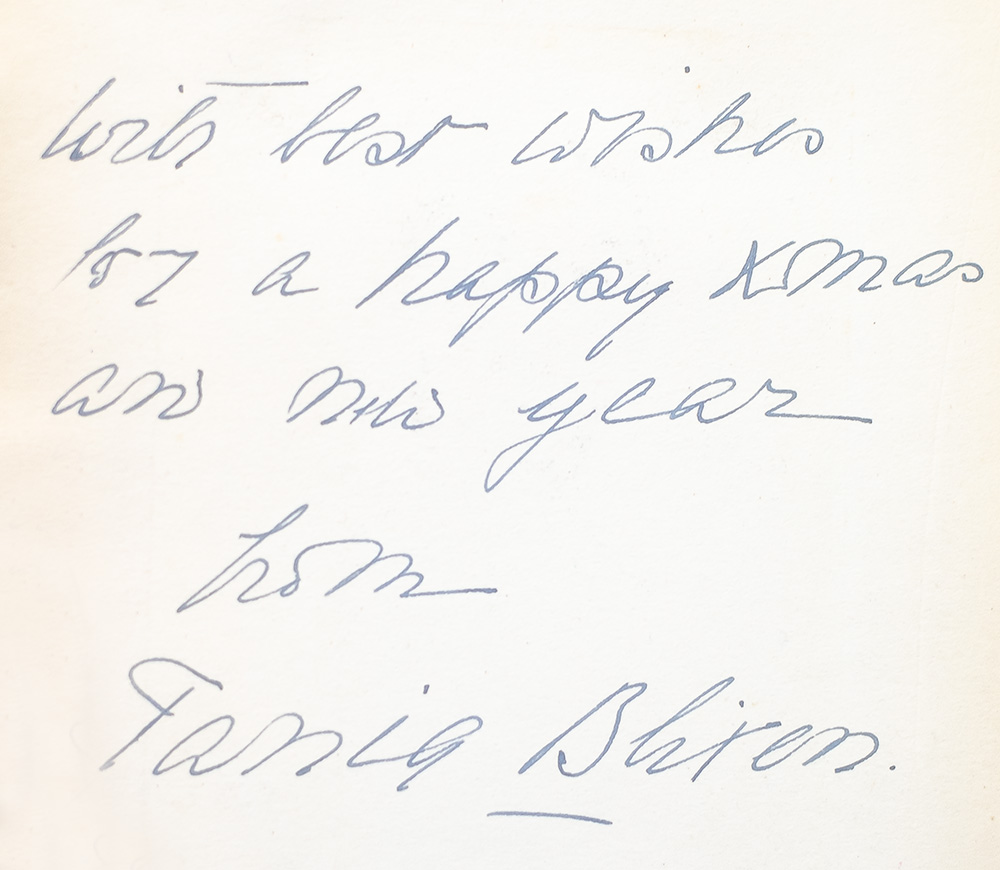 With best wishes
for a happy Xmas
and new year
from
Tania Blixen.